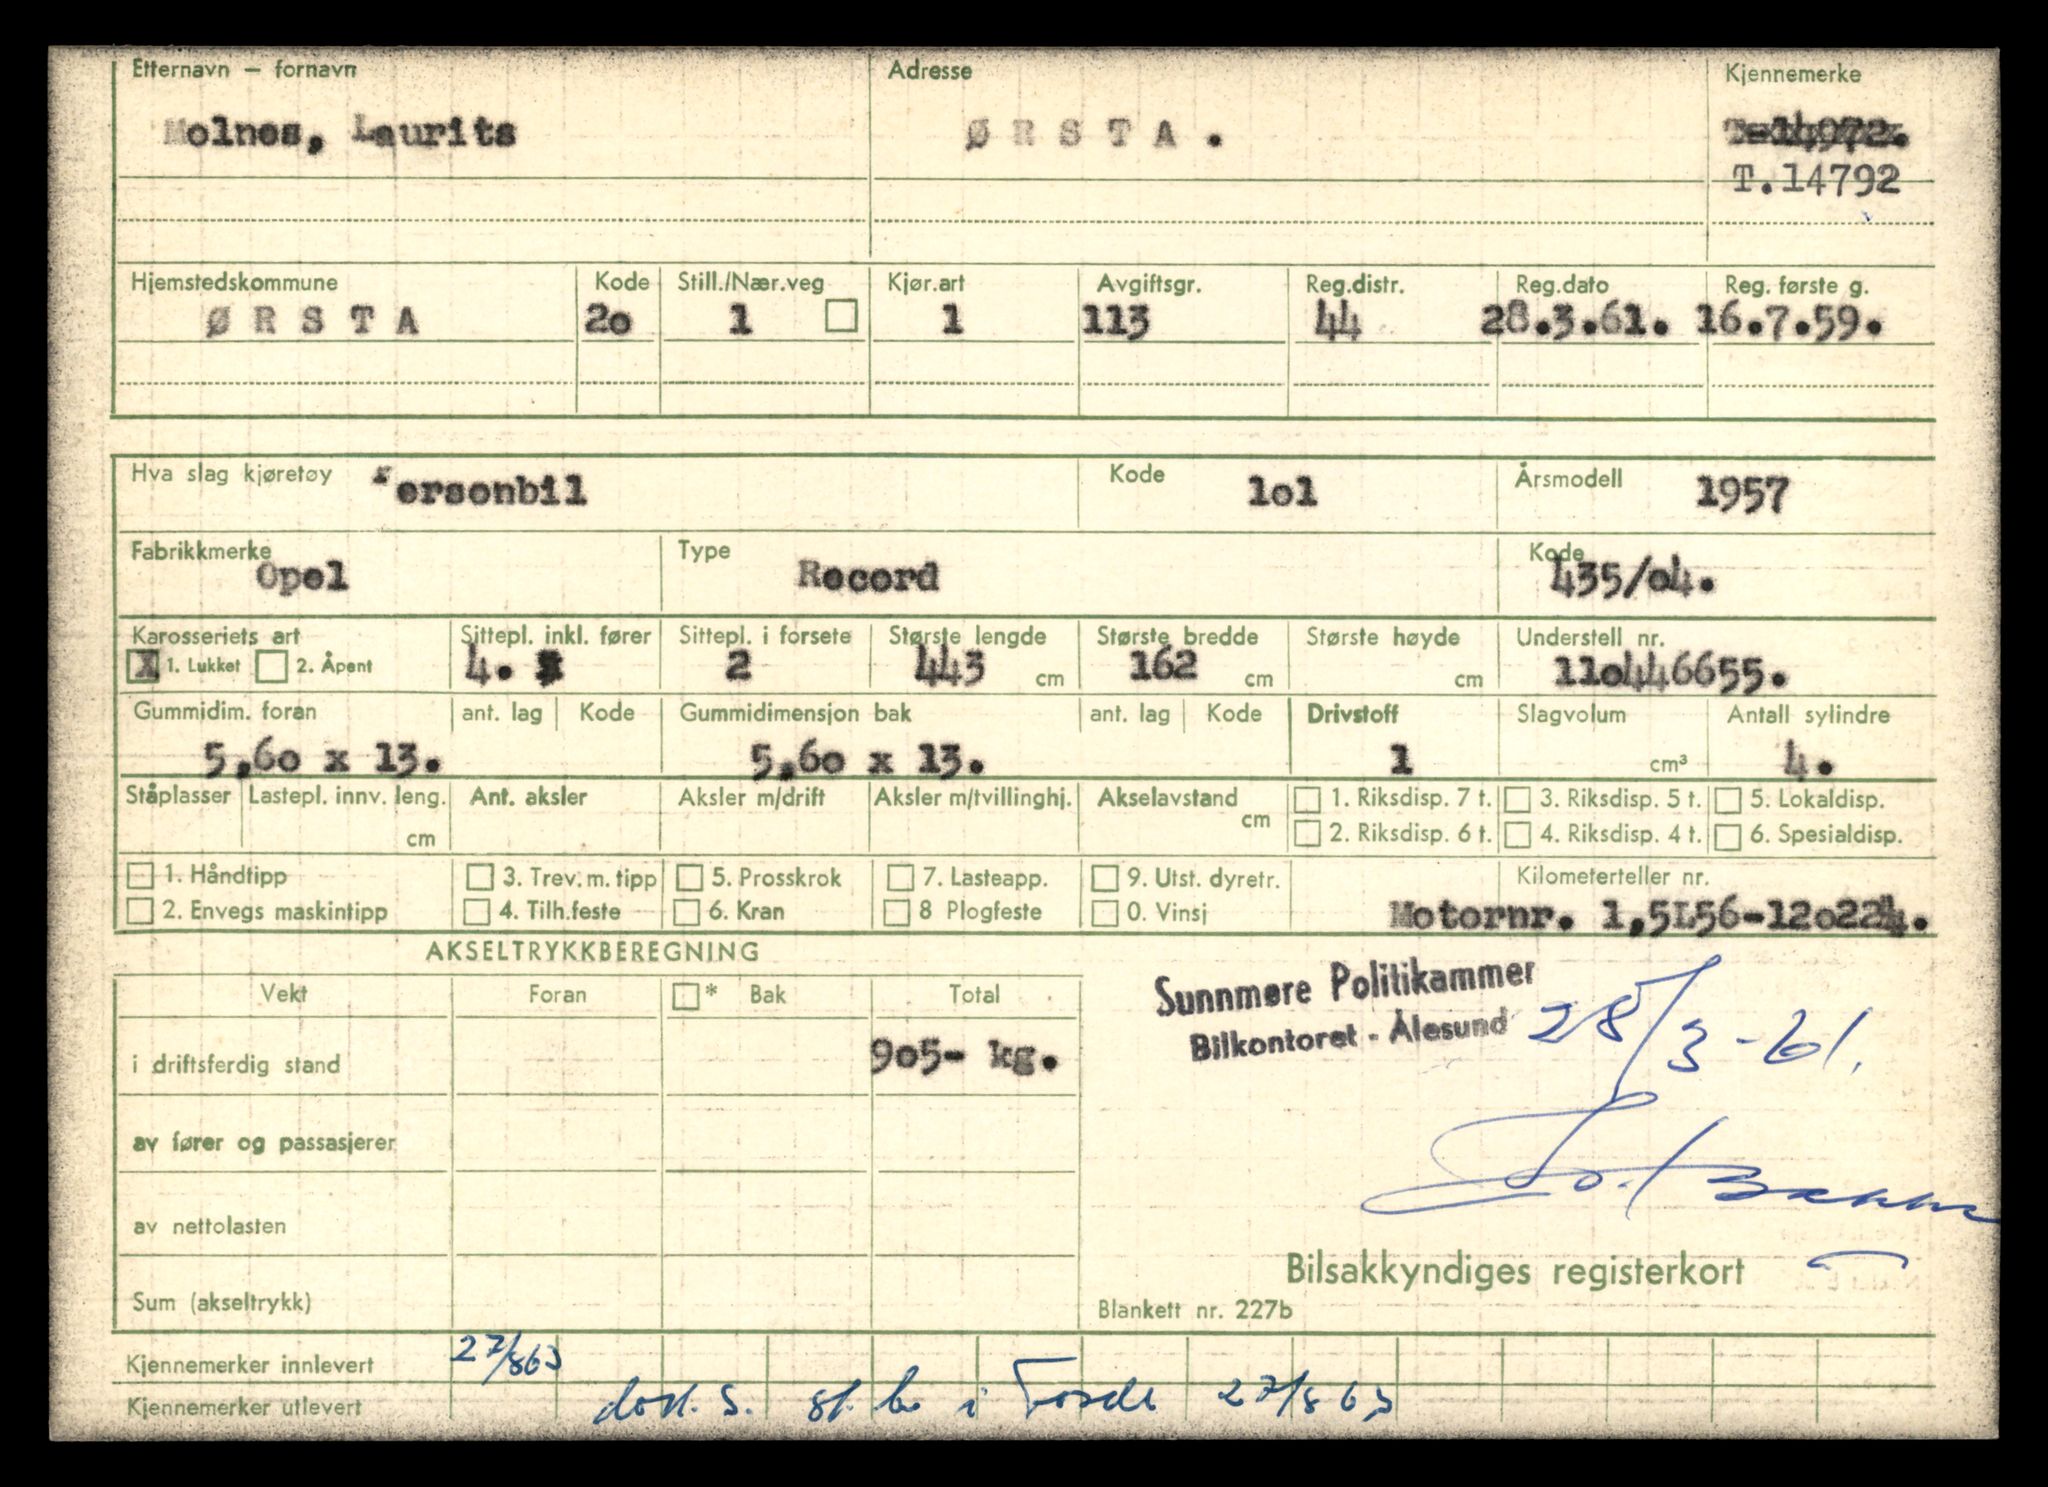 Etternavn – fornavn Adresse Kjennemerke
Molnes, Laurits Ø R S T A . T-14972.
T.14792
Hjemstedskommune Kode Still./Nær.veg Kjør.art Avgiftsgr. Reg.distr. Reg.dato Reg. første g.
Ø R S T A 2o 1 1 113 44 28.3.61. 16.7.59.
Hva slag kjøretøy Personbil Kode 1o1 Årsmodell 1957
Fabrikkmerke Type Kode
Opel Record 435/o4.
Karosseriets art Sittepl. inkl. fører Sittepl. i forsete Største lengde Største bredde Største høyde Understell nr.
X 1. Lukket 2. Åpent 4. 2 443 cm 162 cm cm 11o446655.
Gummidim. foran ant. lag Kode Gummidimensjon bak ant. lag Kode Drivstoff Slagvolum Antall sylindre
5,6o x 13. 5,6o x 13. 1 cm³ 4.
Ståplasser Lastepl. innv. leng. Ant. aksler Aksler m/drift Aksler m/tvillinghj. Akselavstand 1. Riksdisp. 7 t. 3. Riksdisp. 5 t. 5. Lokaldisp.
cm cm 2. Riksdisp. 6 t. 4. Riksdisp. 4 t. 6. Spesialdisp.
1. Håndtipp 3. Trev. m. tipp 5. Prosskrok 7. Lasteapp. 9. Utst. dyretr. Kilometerteller nr.
2. Envegs maskintipp 4. Tilh.feste 6. Kran 8 Plogfeste 0. Vinsj Motornr. 1,5L56-12o224.
AKSELTRYKKBEREGNING
Vekt Foran * Bak Total
Sunnmøre Politikammer
Bilkontoret - Ålesund 28/3-61.
i driftsferdig stand 9o5- kg.
av fører og passasjerer
av nettolasten
Bilsakkyndiges registerkort
Sum (akseltrykk) Blankett nr. 227b
Kjennemerker innlevert 27/863
Kjennemerker utlevert i 27/863